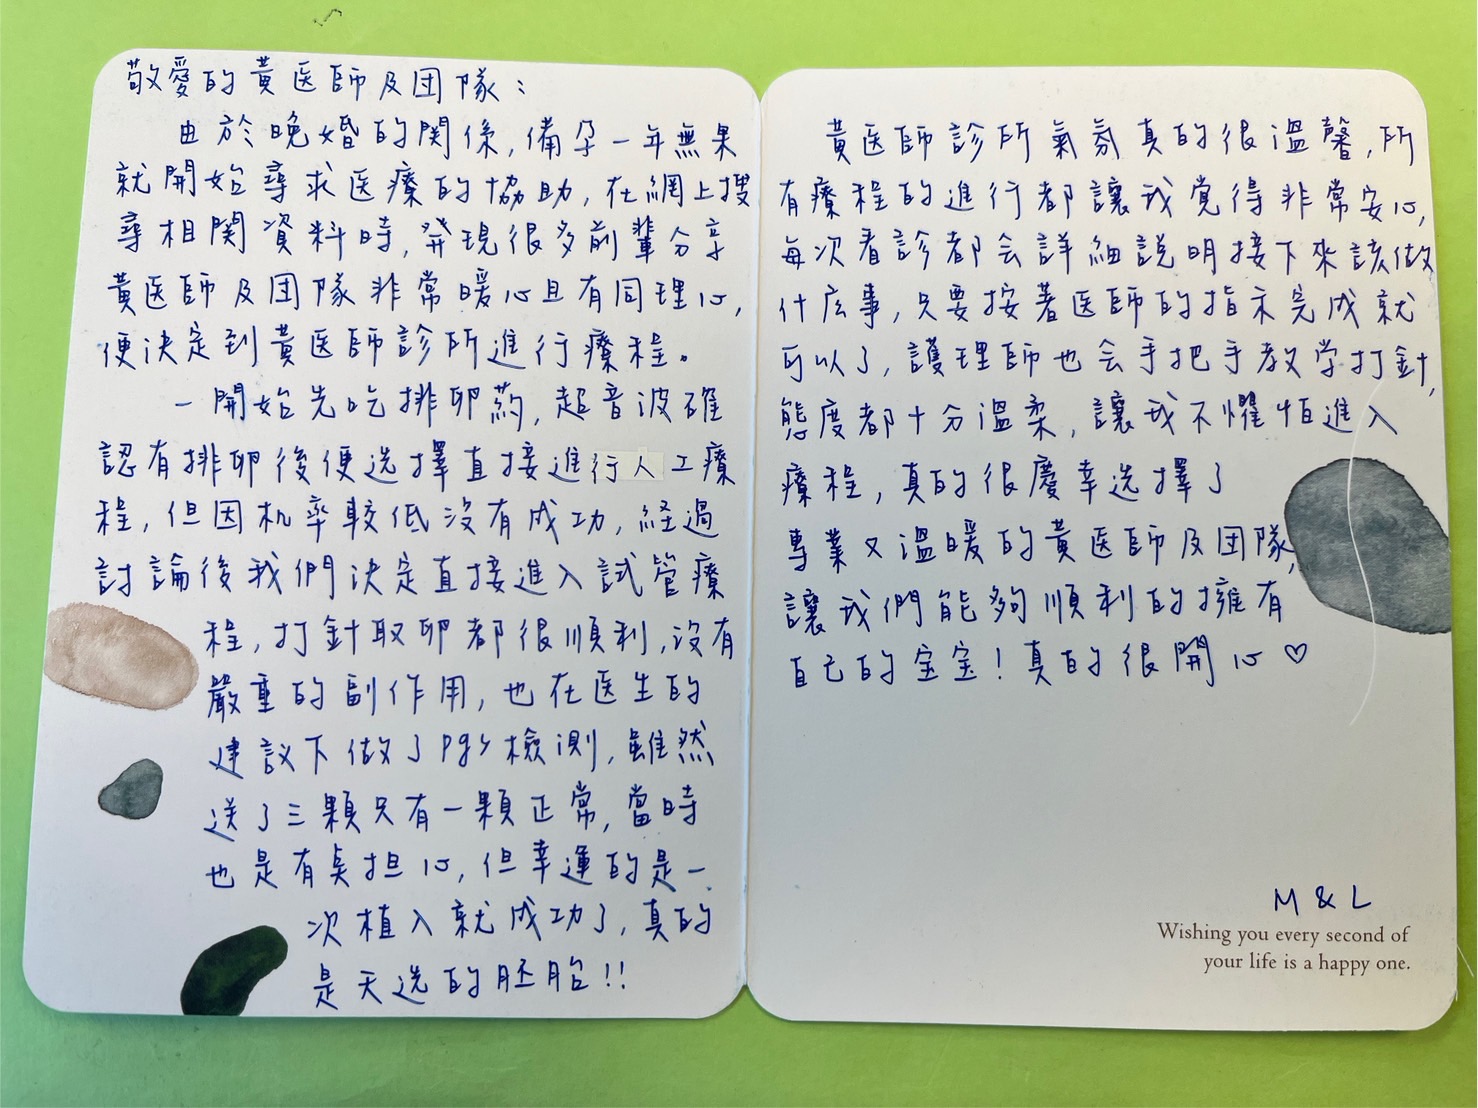 敬愛的黃医師及団隊：
由於晚婚的関係，備孕一年無果
就開始尋求医療的協助，在網上搜
尋相関資料時，発現很多前輩分享
黃医師及団隊非常暖心且有同理心，
便決定到黃医師診所進行療程。
一開始先吃排卵药，超音波確
認有排卵後便选擇直接進行人工療
程，但因机率較低沒有成功，経過
討論後我們決定直接進入試管療
程，打針取卵都很順利，沒有
嚴重的副作用，也在医生的
建议下做了pgs檢測，雖然
送了三顆只有一顆正常，當時
也是有奌担心，但幸運的是一
次植入就成功了，真的
是天选的胚胎!!
黃医師診所氣氛真的很溫馨，所
有療程的進行都讓我覚得非常安心，
每次看診都会詳細說明接下來該做
什庅事，只要按著医師的指示完成就
可以了，護理師也会手把手教学打針，
態度都十分溫柔，讓我不懼怕進入
療程，真的很慶幸选擇了
專業又溫暖的黃医師及団隊，
讓我們能夠順利的擁有
自己的宝宝！真的很開心♡
M & L
Wishing you every second of
your life is a happy one.